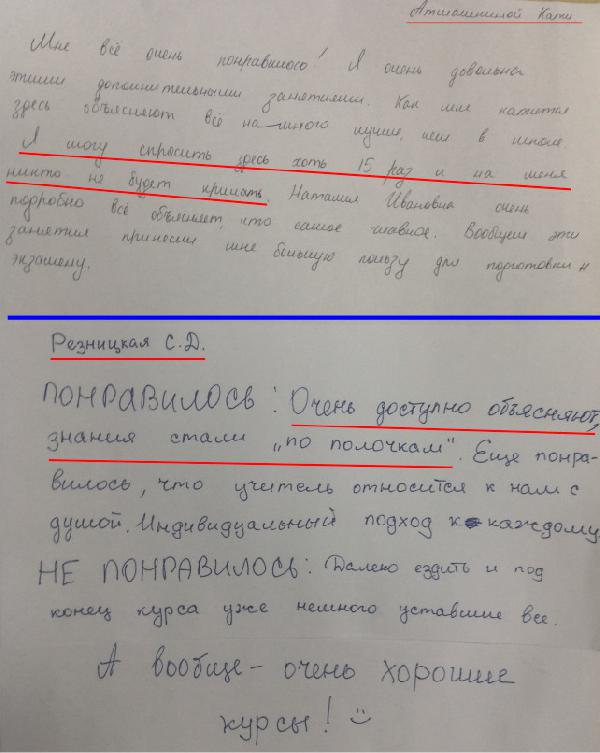 Кати
Мне всё очень понравилось! Я очень довольна
этими дополнительными занятиями. Как мне кажется
здесь объясняют всё на много лучше, чем в школе.
Я могу спросить здесь хоть 15 раз и на меня
никто не будет кричать. Наталия Ивановна очень
подробно всё объясняет, что самое главное. Вообщем эти
занятия приносят мне большую пользу для подготовки к
экзамену.
Резницкая С.Д.
ПОНРАВИЛОСЬ: Очень доступно объясняют,
знания стали „по полочкам“. Еще понра-
вилось, что учитель относится к нам с
душой. Индивидуальный подход к каждому.
НЕ ПОНРАВИЛОСЬ: Далеко ездить и под
конец курса уже немного уставшие все.
А вообще - очень хорошие
курсы! :)